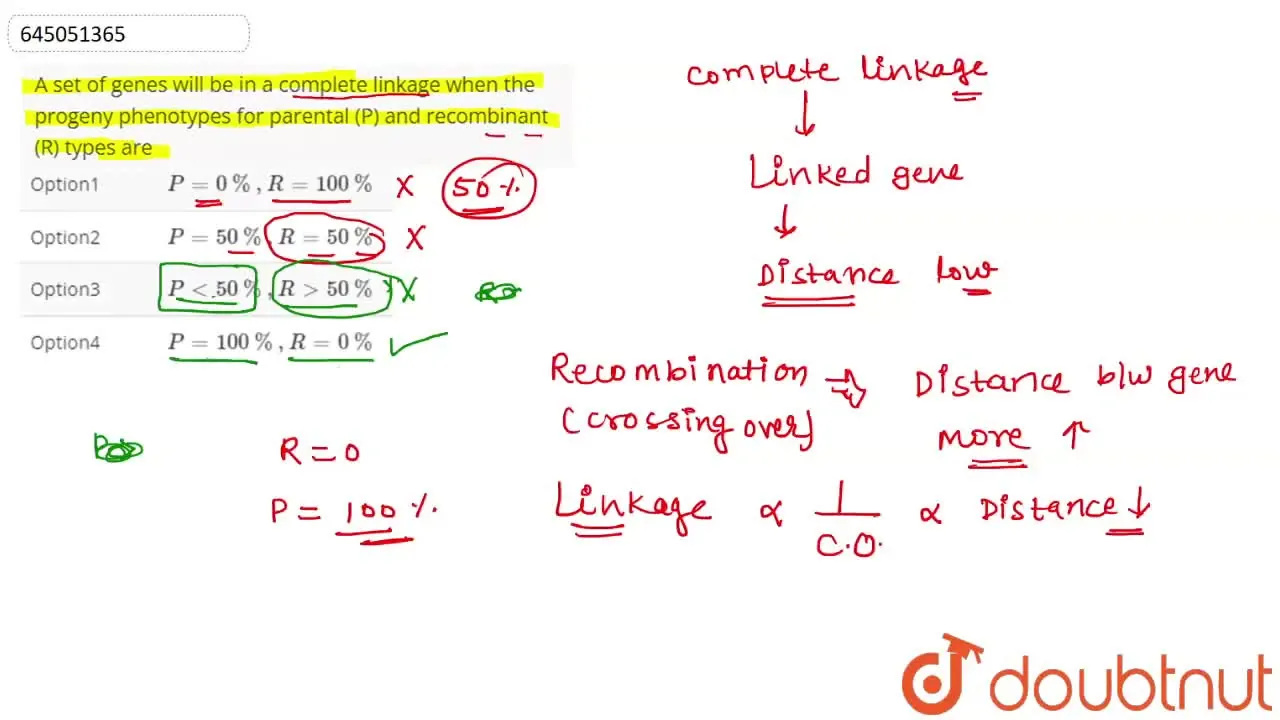 645051365
A set of genes will be in a complete linkage when the
progeny phenotypes for parental (P) and recombinant
(R) types are
Option1 P = 0 % , R = 100 % X 50 %
Option2 P = 50 % , R = 50 % X
Option3 P < 50 % , R > 50 % X
Option4 P = 100 % , R = 0 % ✓
R = 0
P = 100 %
Complete linkage
↓
Linked gene
↓
Distance low
Recombination ⇒ Distance b/w gene
(crossing over) more ↑
Linkage ∝ 1/C.O. ∝ Distance ↓
doubtnut